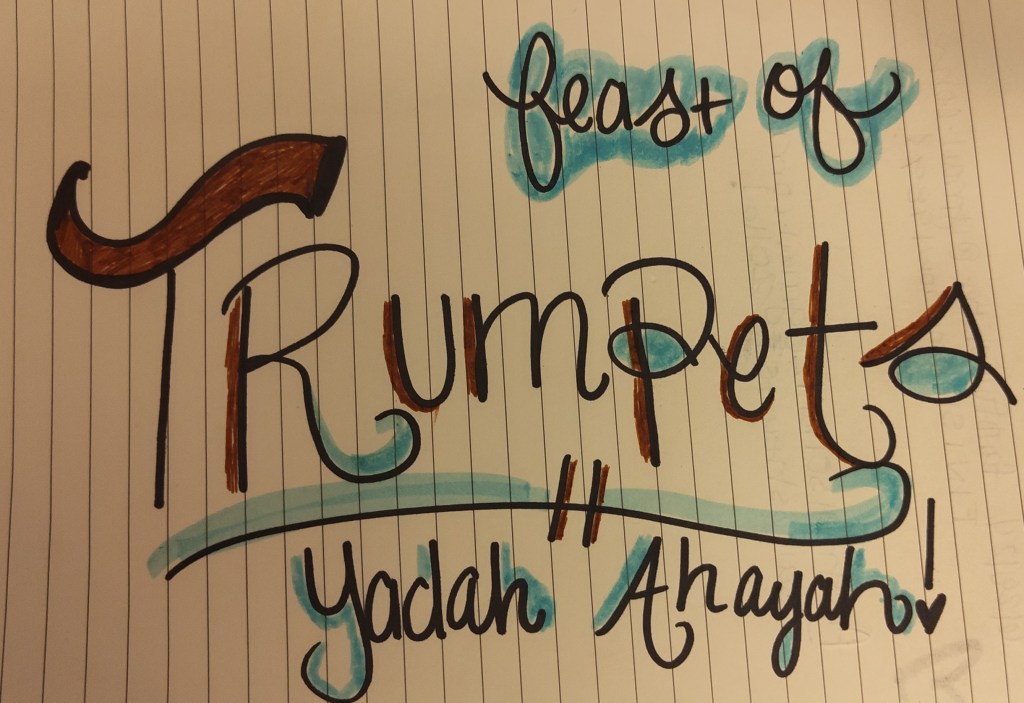 feast of
TRumpets
Yadah Ahayah!